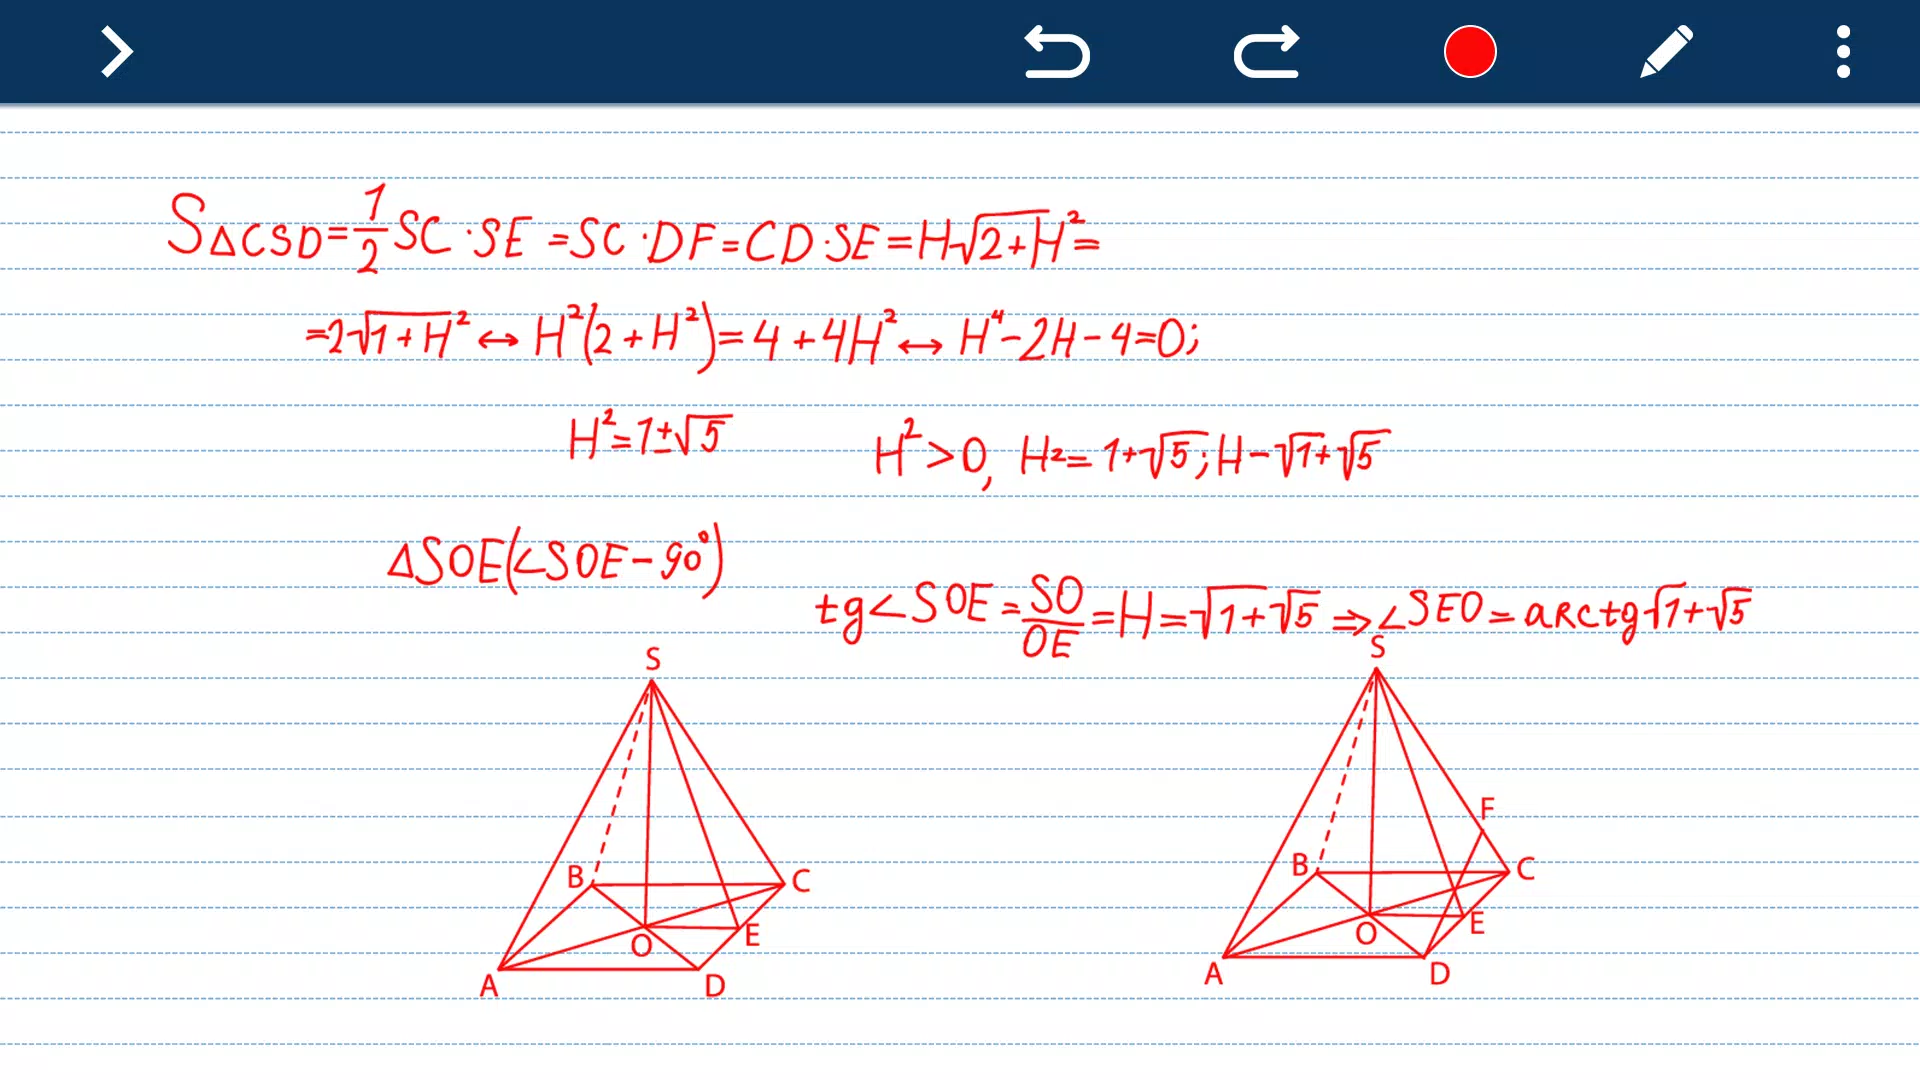 S△CSD=1/2 SC·SE=SC·DF=CD·SE=H√2+H²=
=2√1+H² ↔ H²(2+H²)=4+4H² ↔ H⁴-2H-4=0;
H²=1±√5 H²>0, H2=1+√5; H-√1+√5
△SOE(∠SOE-90°)
tg∠SOE=SO/OE=H=√1+√5 ⇒ ∠SEO=arctg√1+√5
S S
F
B C B C
O E O E
A D A D